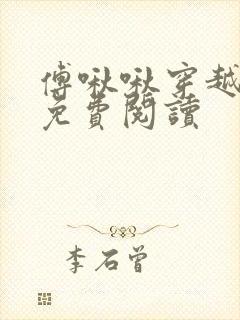 傅啾啾穿越
免費閱讀
李石曾